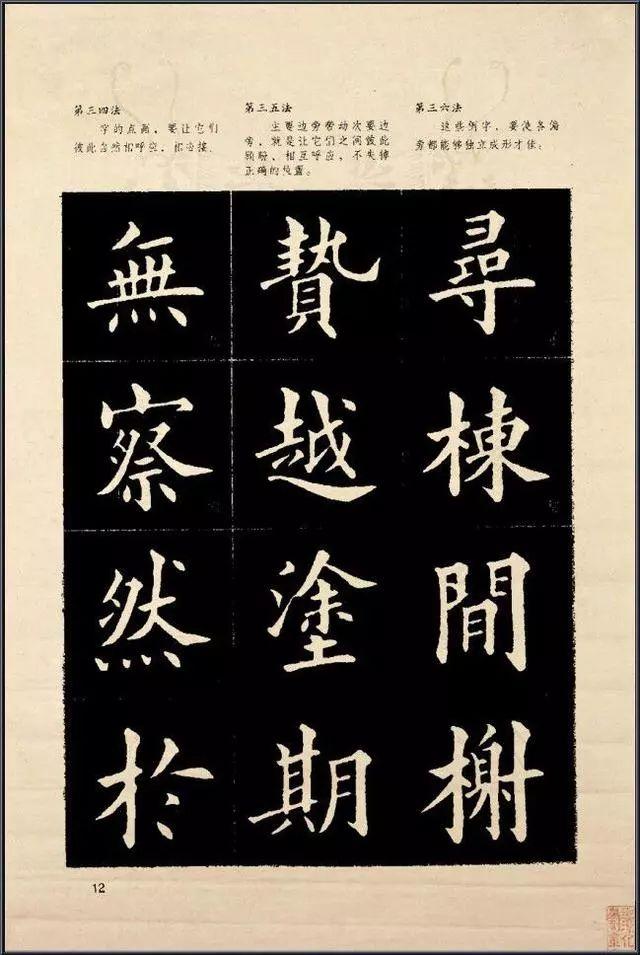 第三四法
字的点画，要让它们
彼此自然相呼应，相连接。
第三五法
主要边旁带动次要边
旁，就是让它们之间彼此
顾盼、相互呼应，不失掉
正确的位置。
第三六法
这些例字，要使各偏
旁都能够独立成形才佳。
無
察
然
於
贄
越
塗
期
尋
棟
閒
榭
12